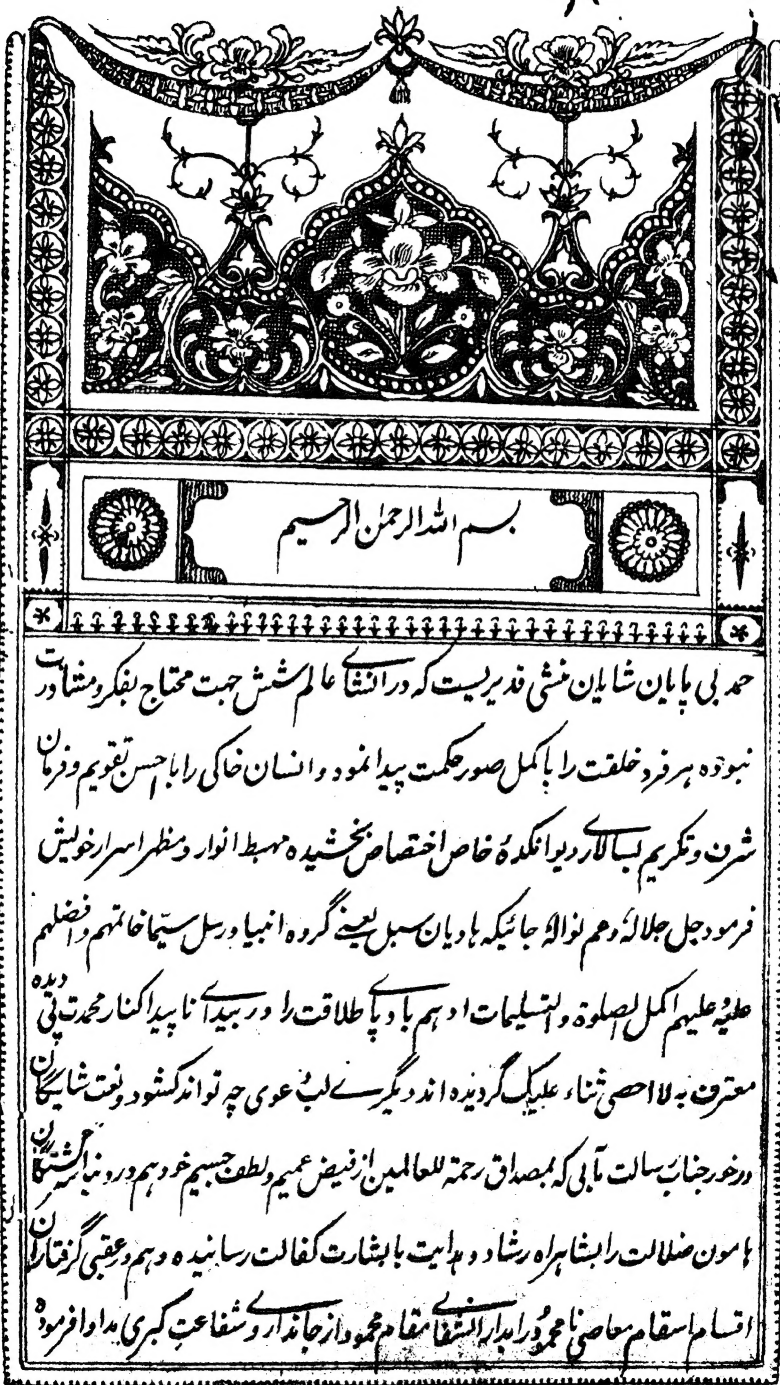 بسم الله الرحمن الرحیم
حمد بی پایان شایان منشی قدیریست که در انشای عالم شش جهت محتاج بفکر و مشاورت
نبوده هر فرد خلقت را باکمل صور حکمت پیدا نمود و انسان خاکی را باحسن تقویم و فرمان
شرف و تکریم بسالاری دیوانکدۀ خاص اختصاص بخشیده مهبط انوار و مظهر اسرار خویش
فرمود جل جلالهٗ و عم نوالهٗ جائیکه هادیان سبل یعنے گروه انبیا و رسل سیّما خاتمهم و افضلهم
علیه و علیهم اکمل الصلوة و التسلیمات ادهم باد پاے طلاقت را در بیداے ناپیدا کنار محمدت پی دیده
معترف به لا احصی ثناء علیک گردیده اند دیگرے لب دعوی چه تواند کشود و نعت شایگان
درخور جناب رسالت مآبی که بمصداق رحمة للعالمین از فیض عمیم و لطف جسیم خود هم در دنیا سرگشتگان
هامون ضلالت را بشاهراه رشاد و هدایت با بشارت کفالت رسانیده و هم در عقبی گرفتاران
اقسام اسقام معاصی نامحمود را بدار الشفاے مقام محمود از جانداروے شفاعت کبری مداوا فرموده